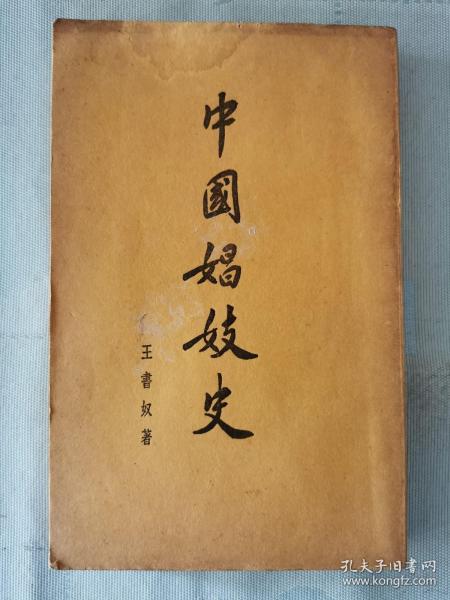 中國娼妓史
王書奴著
孔夫子旧书网
www.kongfz.com